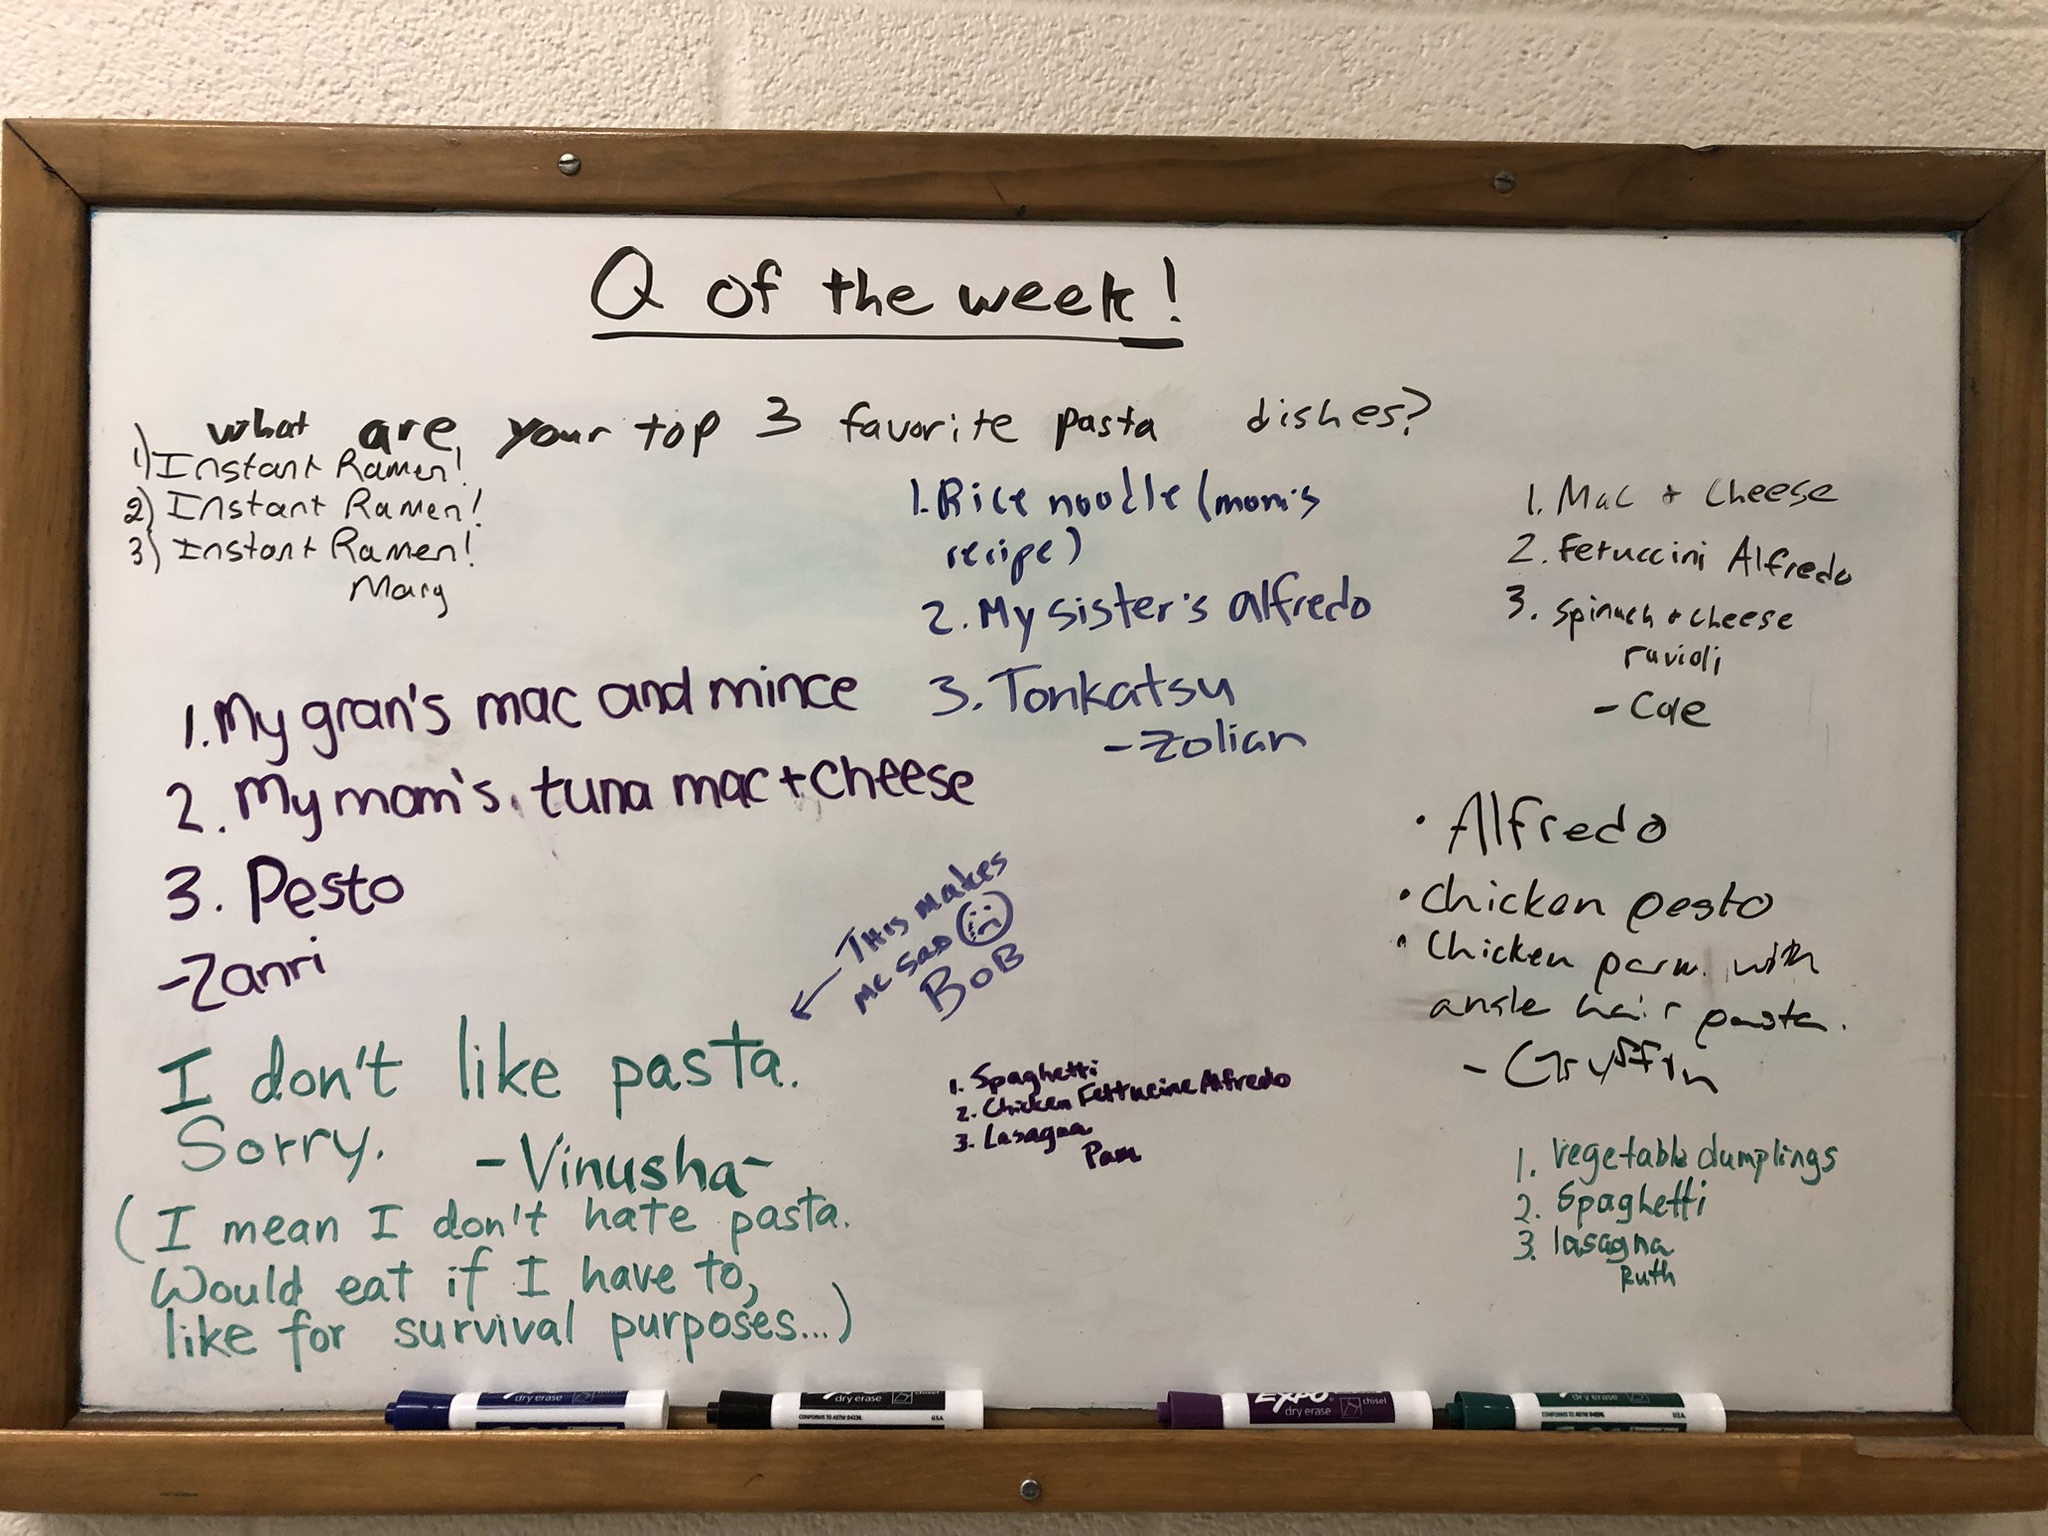 Q of the week!
What are your top 3 favorite pasta dishes?
1) Instant Ramen!
2) Instant Ramen!
3) Instant Ramen!
Marg
1. Rice noodle (mom's
recipe)
2. My sister's alfredo
3. Tonkatsu
-Zolian
1. Mac + Cheese
2. Fetuccini Alfredo
3. Spinach + cheese
ravioli
- Cae
1. My gran's mac and mince
2. My mom's tuna mac + cheese
3. Pesto
-Zanri
• Alfredo
• Chicken pesto
• Chicken parm. with
angle hair pasta.
- Gryffin
This makes
me sad
BOB
I don't like pasta.
Sorry. -Vinusha-
(I mean I don't hate pasta.
Would eat if I have to,
like for survival purposes...)
1. Spaghetti
2. Chicken Fettucine Alfredo
3. Lasagna
Pam
1. Vegetable dumplings
2. Spaghetti
3. lasagna
Ruth
dry erase
dry erase
CONFORMS TO ASTM D4236. U.S.A.
EXPO chisel
dry erase
dry erase
CONFORMS TO ASTM D4236. U.S.A.